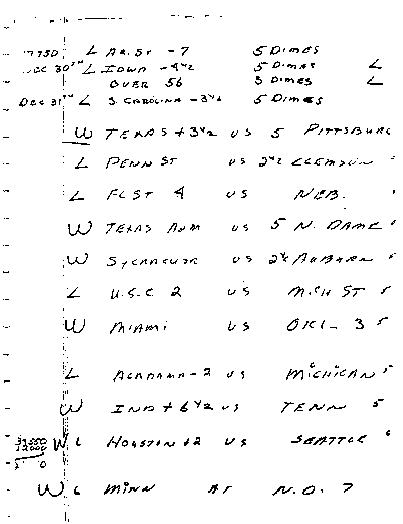 L AR. ST - 7 5 DIMES
DEC 30TH L IOWA - 4 1/2 5 DIMES L
OVER 56 5 DIMES L
DEC 31ST L S. CAROLINA - 3 1/2 5 DIMES
W TEXAS + 3 1/2 VS 5 PITTSBURG
L PENN ST VS 2 1/2 CLEMSON
L FLST 4 VS NEB.
W TEXAS A&M VS 5 N. DAME
W SYRACUSE VS 2 1/2 AUBURN 5
L U.S.C 2 VS MICH ST 5
W MIAMI VS OKL - 3 5
L ALABAMA - 2 VS MICHIGAN 5
W IND + 6 1/2 VS TENN 5
W 6 HOUSTON + 2 VS SEATTLE 6
W 6 MINN AT N.O. 7